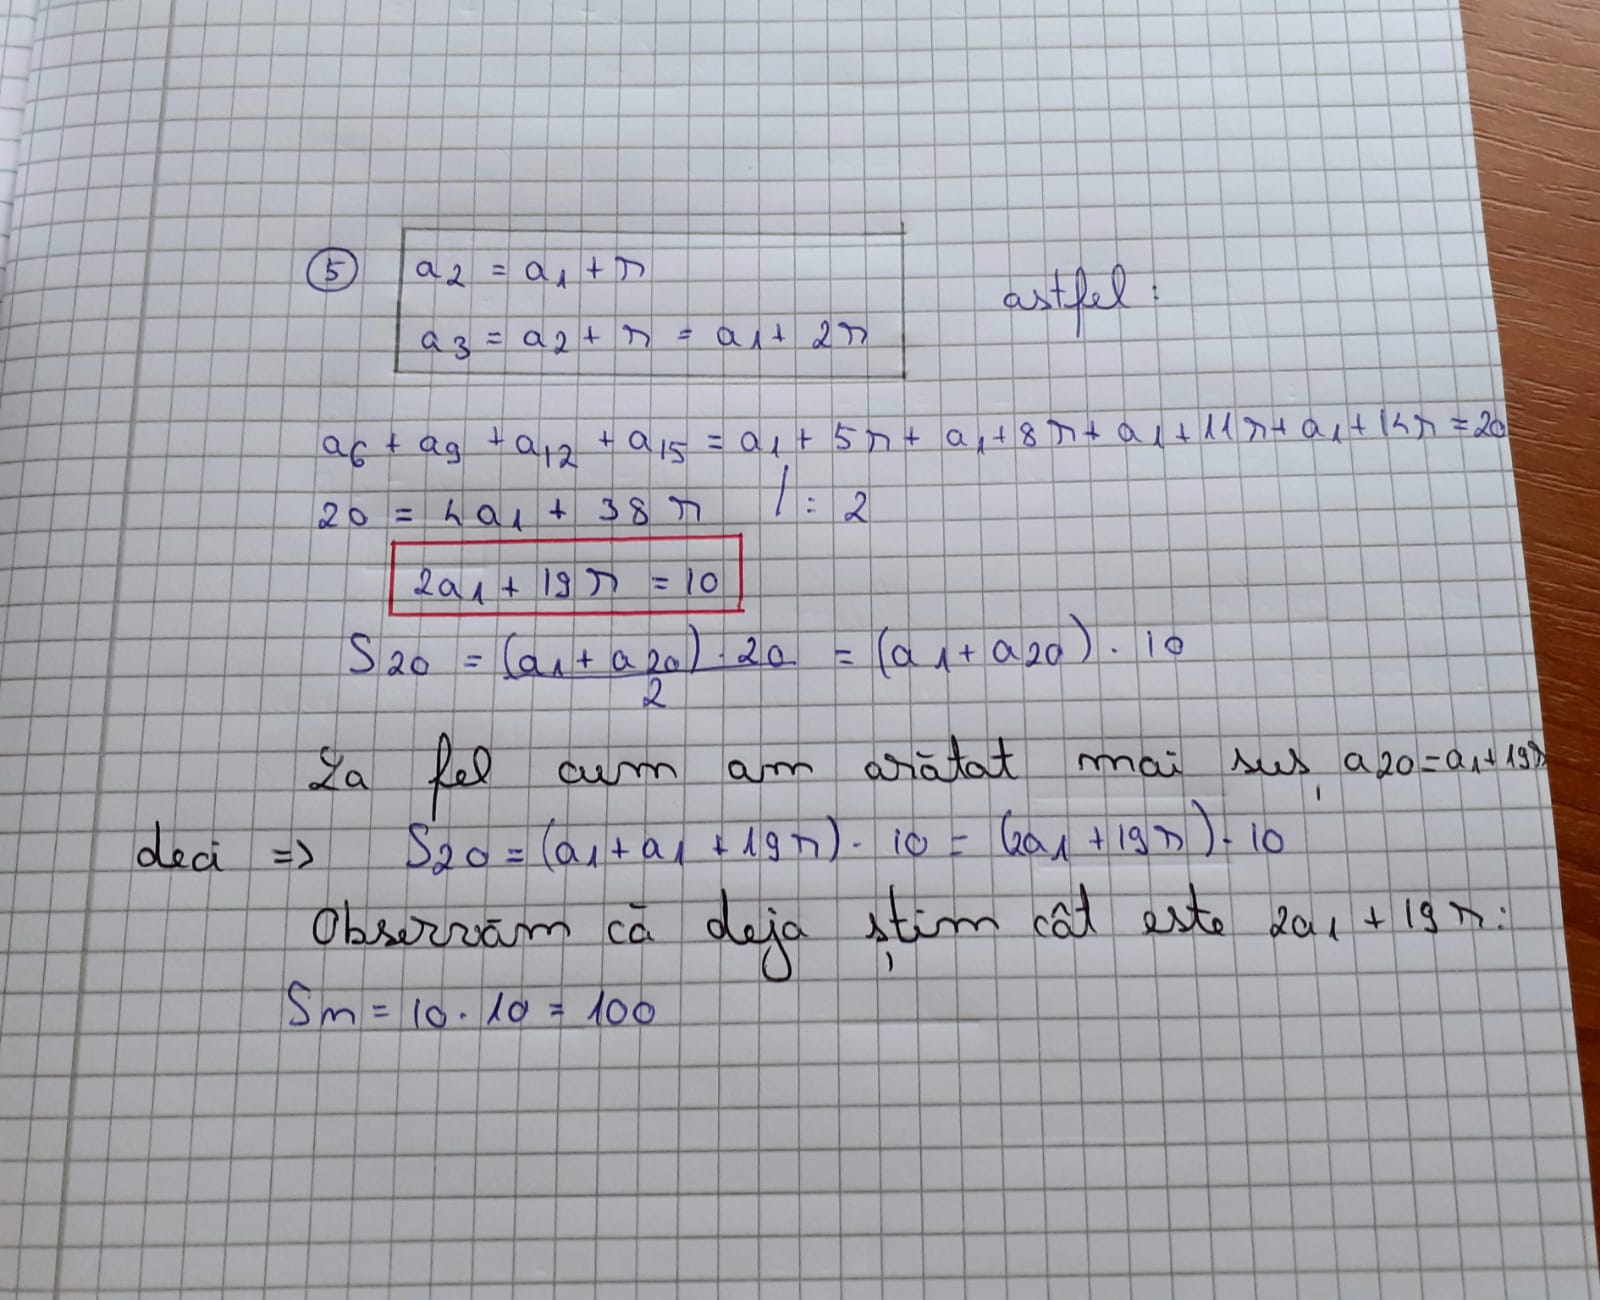 5 a2 = a1 + r
a3 = a2 + r = a1 + 2r
astfel:
a6 + a9 + a12 + a15 = a1 + 5r + a1 + 8r + a1 + 11r + a1 + 14r = 20
20 = 4a1 + 38r /: 2
2a1 + 19r = 10
S20 = (a1 + a20) · 20 / 2 = (a1 + a20) · 10
La fel cum am arătat mai sus, a20 = a1 + 19r
deci => S20 = (a1 + a1 + 19r) · 10 = (2a1 + 19r) · 10
Observăm că deja știm cât este 2a1 + 19r:
Sn = 10 · 10 = 100